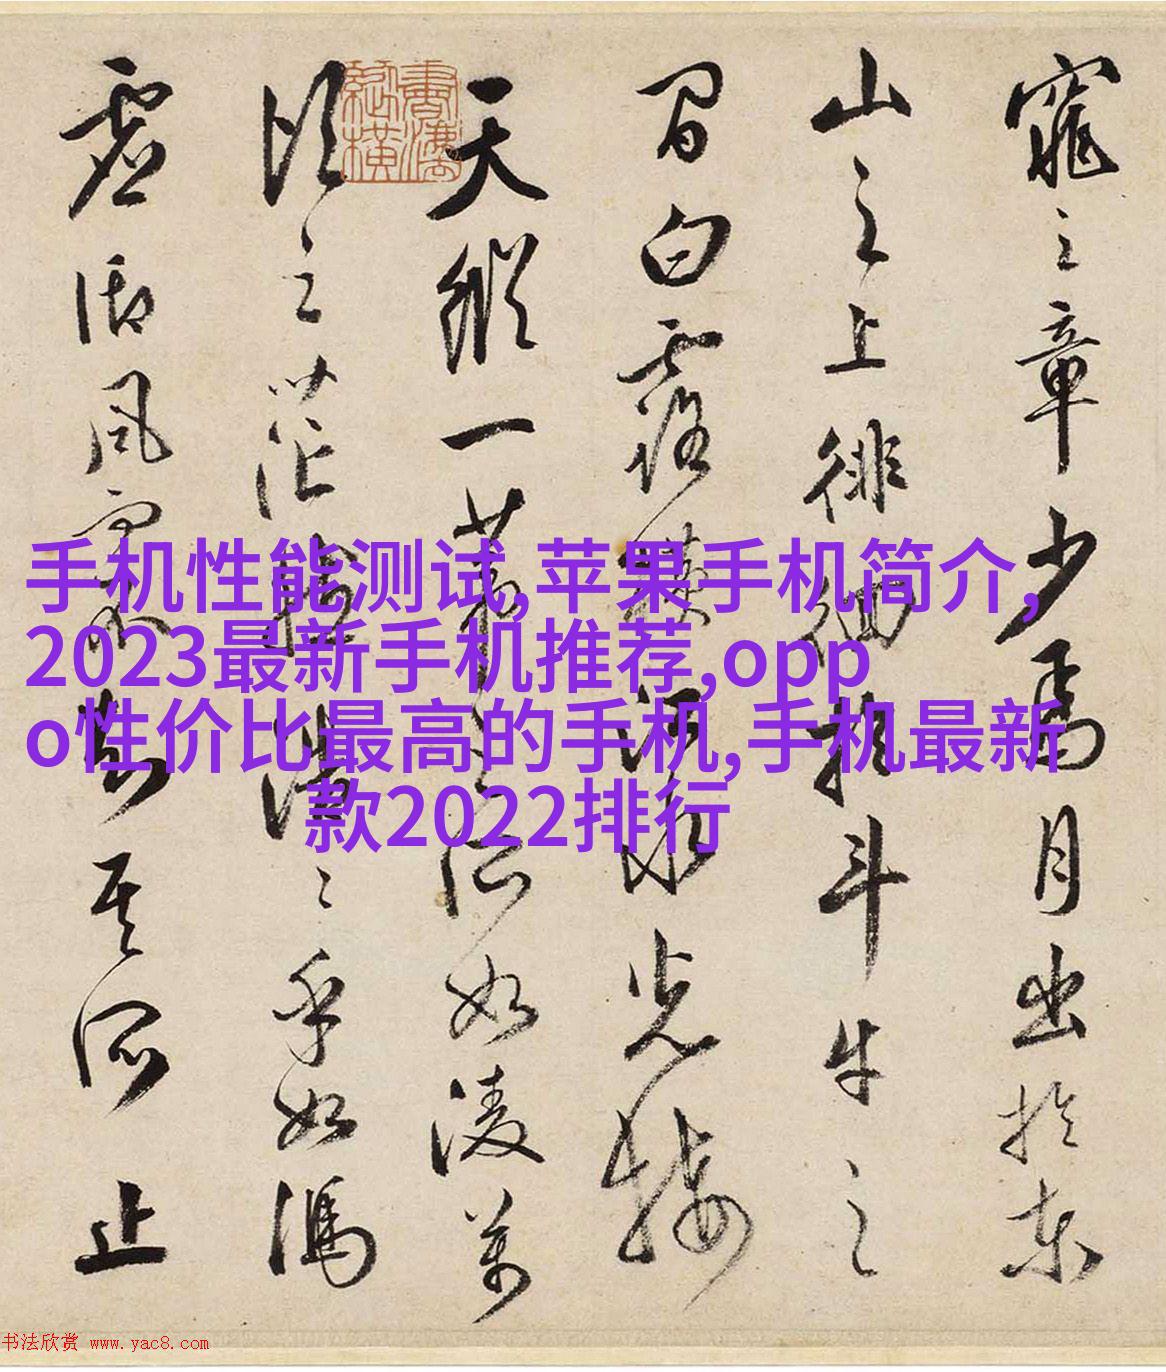 窕之章少焉月出於東
山之上徘徊於斗牛之
間白露橫江水光接
天縱一葦之所如淩萬
頃之茫然浩〻乎如馮
虛御風而不知其所止
手机性能测试,苹果手机简介,
2023最新手机推荐,opp
o性价比最高的手机,手机最新
款2022排行
书法欣赏 www.yac8.com